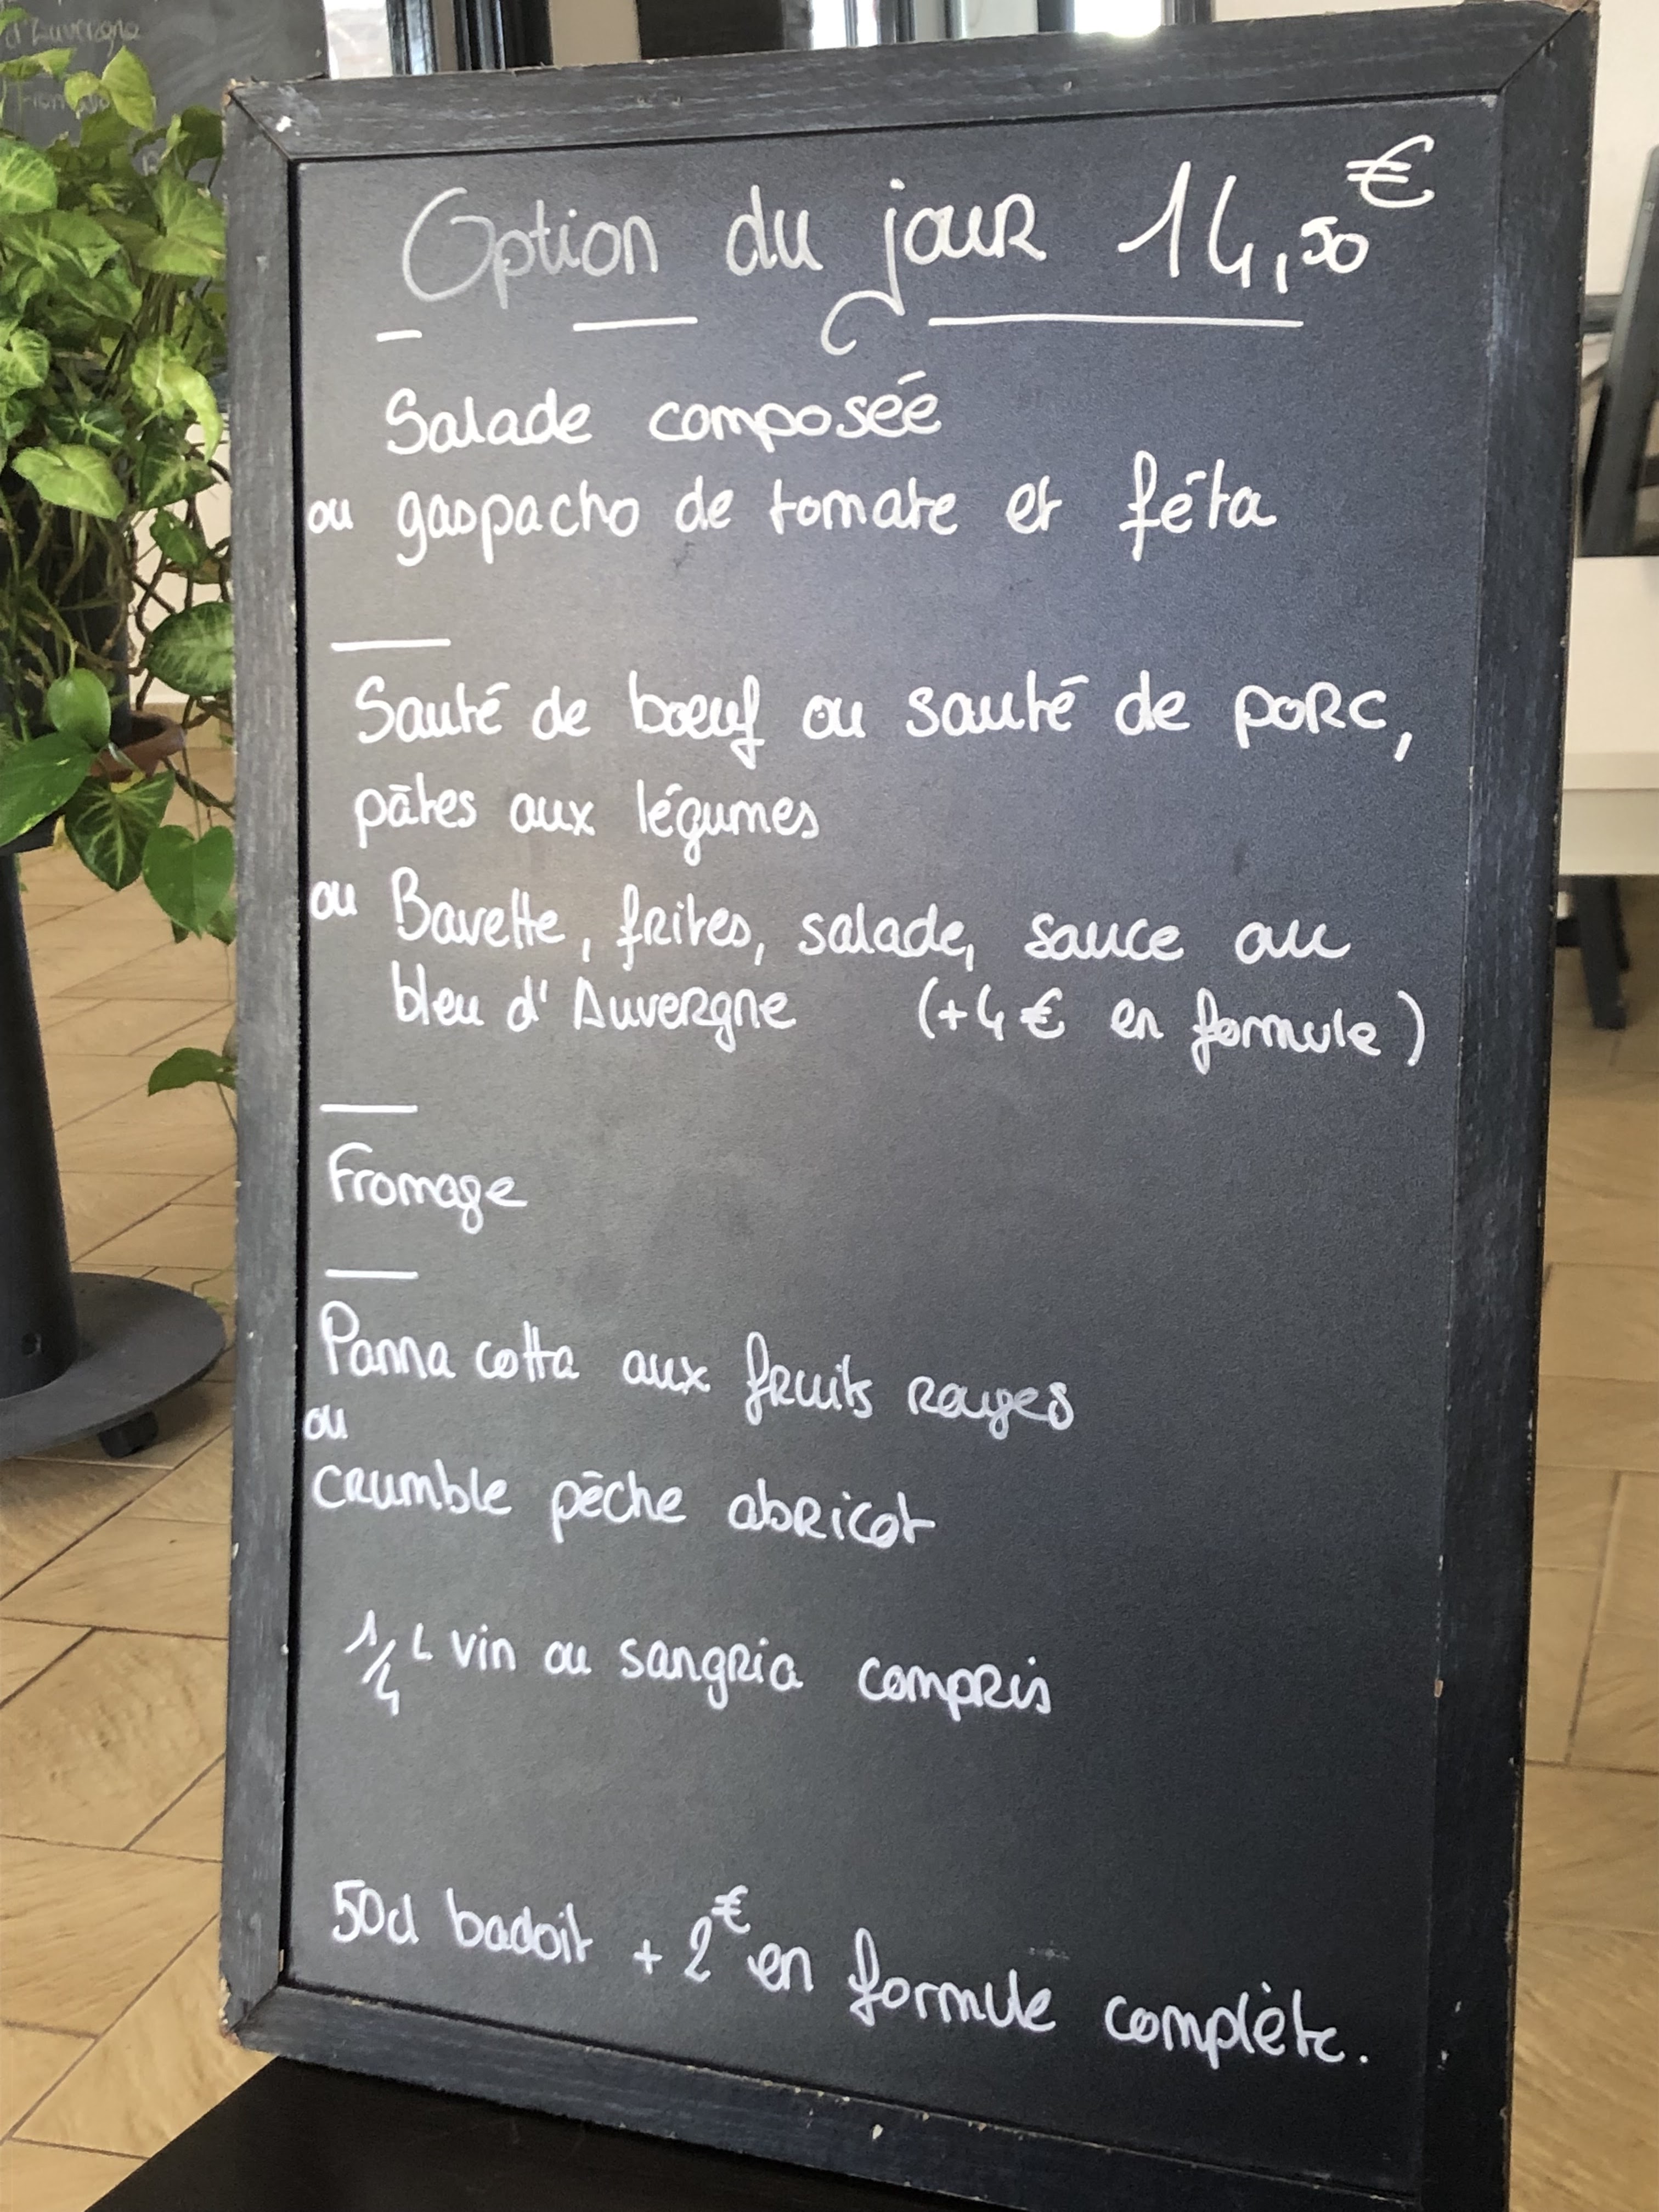 d'Auvergne
Option du jour 14,50€
Salade composée
ou gaspacho de tomate et féta
Sauté de bœuf ou sauté de porc,
pâtes aux légumes
ou Bavette, frites, salade, sauce au
bleu d'Auvergne (+4€ en formule)
Fromage
Panna cotta aux fruits rouges
ou
crumble pêche abricot
1/4 L vin ou sangria compris
50cl badoit + 2€ en formule complète.